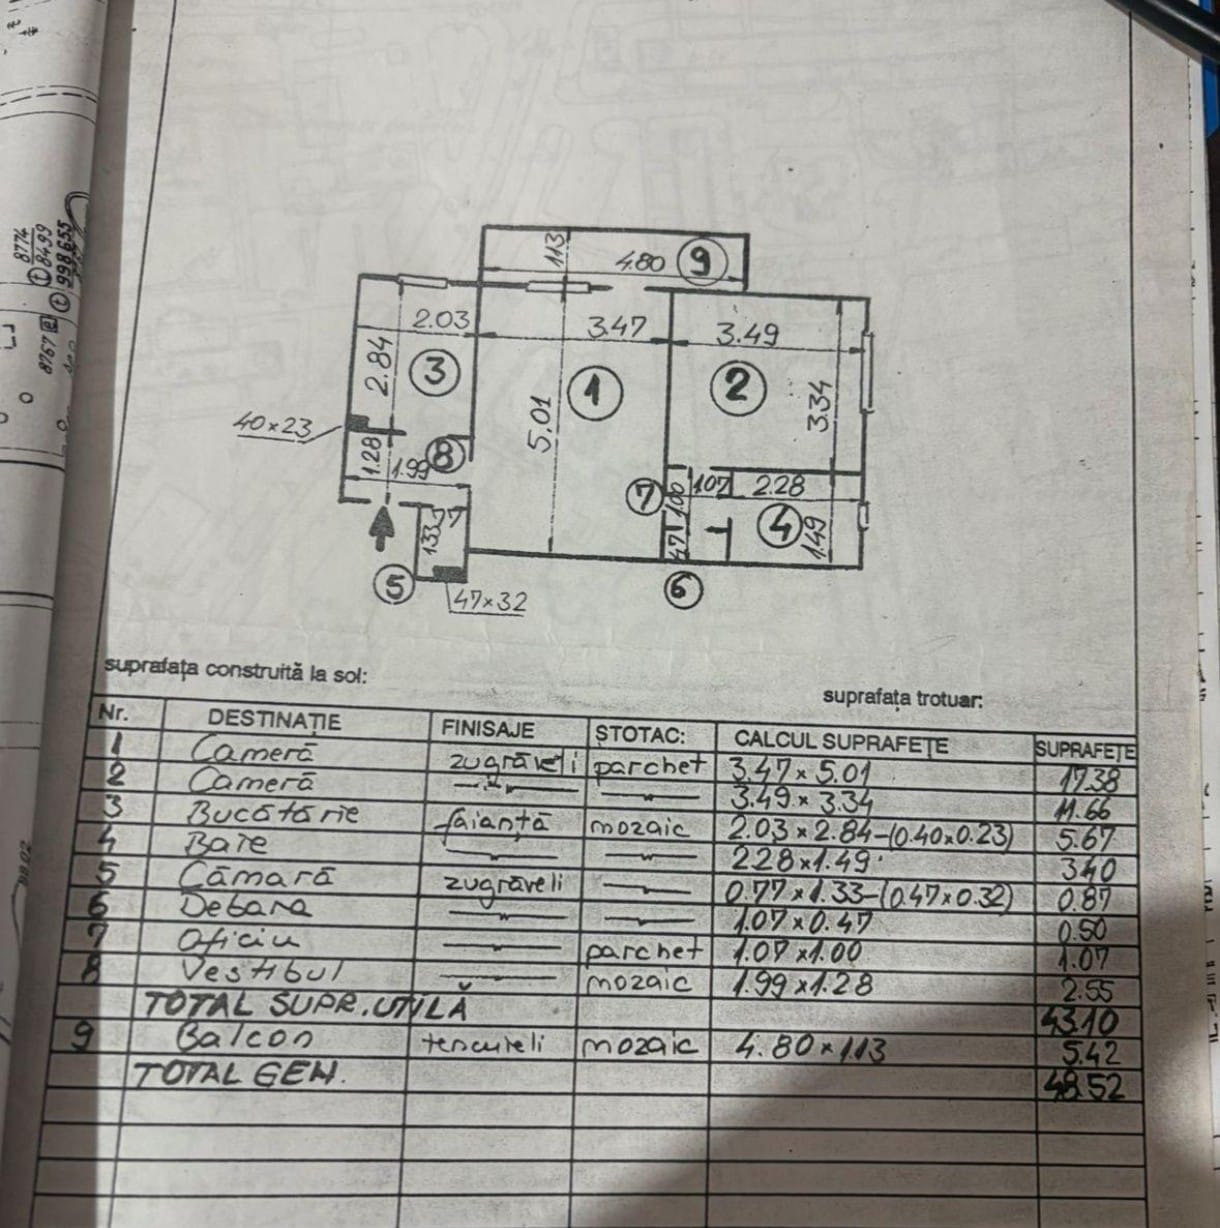 8774
8499
998655
8767
1.13
4.80
9
2.03
3.47
3.49
2.84
3
1
2
5.01
3.34
40×23
1.28
1.99
8
7
1.00
1.07
2.28
4
1.49
1.33
47
5
47×32
6
suprafaţa construită la sol:
suprafaţa trotuar:
Nr. DESTINAŢIE FINISAJE ŞTOTAC: CALCUL SUPRAFEŢE SUPRAFEŢE
1 Cameră zugrăveli parchet 3.47×5.01 17.38
2 Cameră —"— —"— 3.49×3.34 11.66
3 Bucătărie faianţă mozaic 2.03×2.84-(0.40×0.23) 5.67
4 Baie —"— —"— 2.28×1.49 3.40
5 Cămară zugrăveli —"— 0.77×1.33-(0.47×0.32) 0.87
6 Debara —"— —"— 1.07×0.47 0.50
7 Oficiu —"— parchet 1.07×1.00 1.07
8 Vestibul —"— mozaic 1.99×1.28 2.55
TOTAL SUPR. UTILĂ 43.10
9 Balcon tencuieli mozaic 4.80×1.13 5.42
TOTAL GEN. 48.52